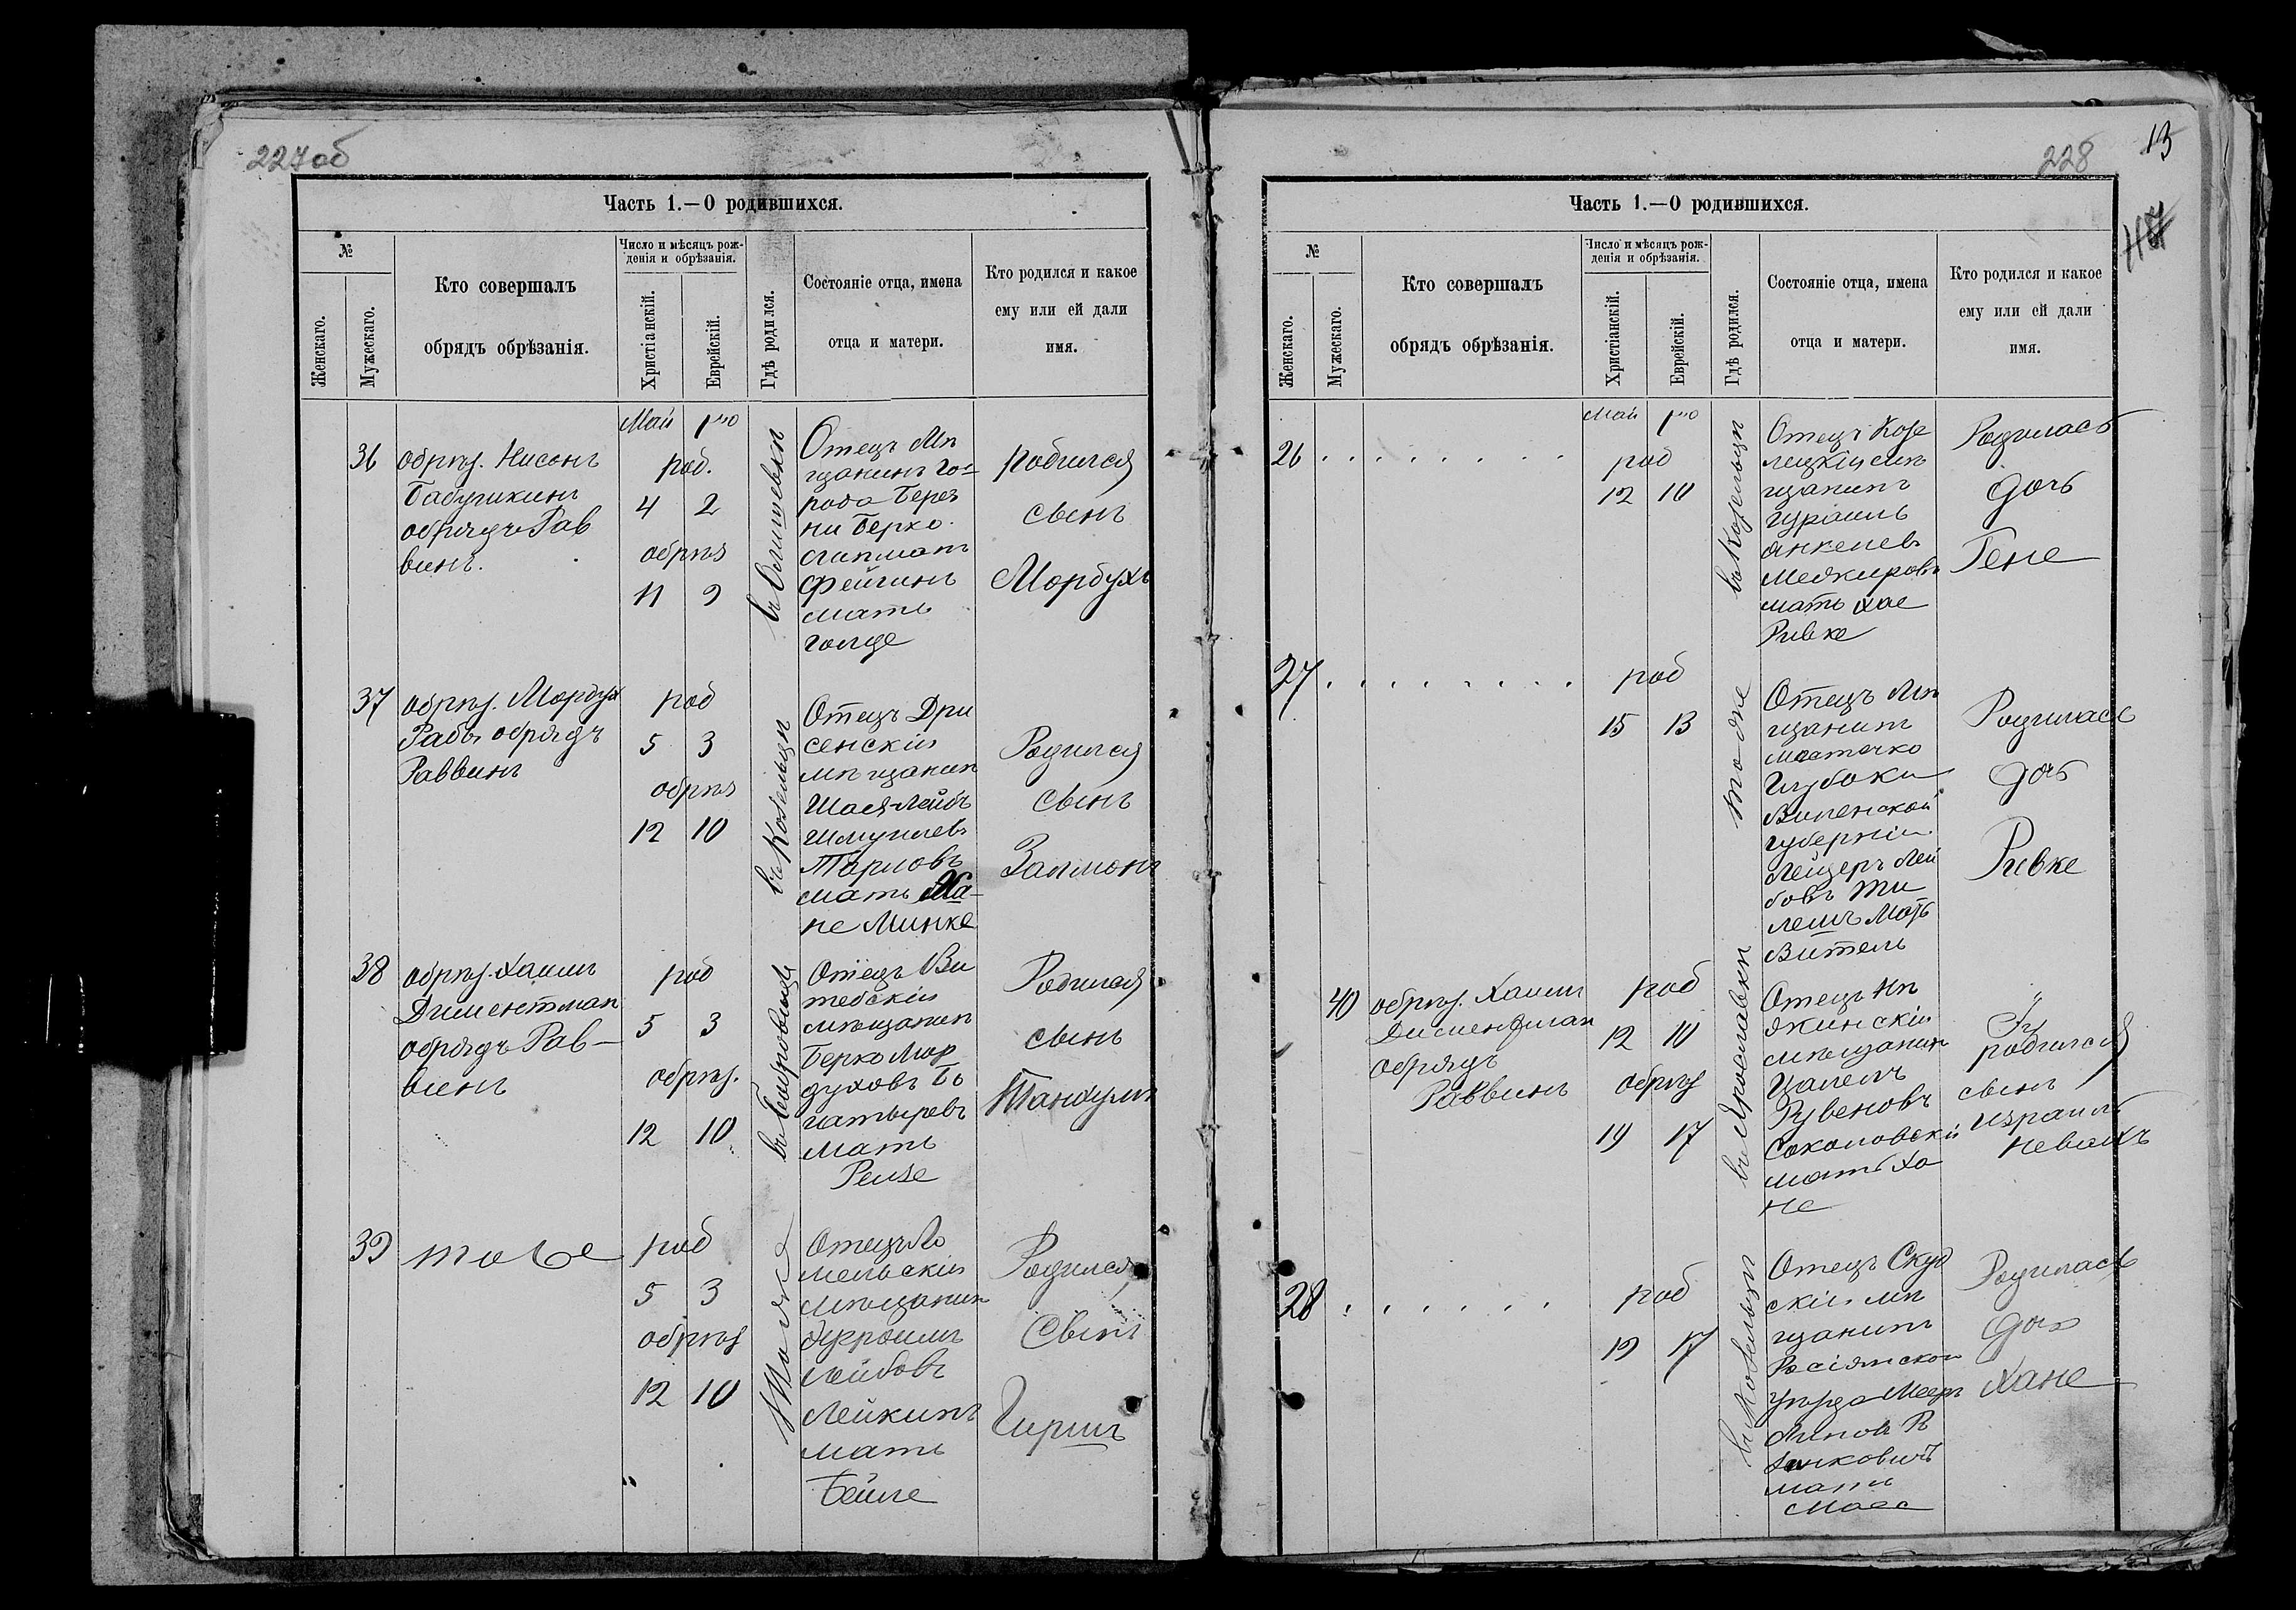 227об
Часть 1.—О родившихся.
№
Женскаго.
Мужескаго.
Кто совершалъ
обрядъ обрѣзанія.
Число и мѣсяцъ рож-
денія и обрѣзанія.
Христіанскій.
Еврейскій.
Гдѣ родился.
Состояніе отца, имена
отца и матери.
Кто родился и какое
ему или ей дали
имя.
Май
36
обрѣз. Нисонъ
Бабушкинъ
обрядъ Рав
винъ.
род.
4 2
обрѣз
11 9
Отецъ Мѣ
щанинъ го=
рода Берез
ни Берко
Фейгинъ
мать
Голде
родился
сынъ
Мордухъ
37
обрѣз. Мордух
Рабъ обрядъ
Раввинъ
род
5 3
обрѣз
12 10
въ Козельцѣ
Отецъ Дри
сенскій
мѣщанин
Шмуилевъ
Тарловъ
мать Ха-
не Минке
Родился
сынъ
Залмонъ
38
обрѣз. Хаим
Диментман
обрядъ Рав-
винъ
род
5 3
обрѣз.
12 10
въ Бобровицѣ
Отецъ Ви
тебскій
мѣщанин
Берко Мор
духовъ Бо
гатыревъ
мать
Рейзе
Родился
сынъ
Танхумъ
39
тоже
род
5 3
обрѣз
12 10
тоже
Отецъ Го
мельскій
мѣщанин
Лейбовъ
Лейкинъ
мать
Бейле
Родился
Сынъ
Гиршъ
13
228
Часть 1.—О родившихся.
№
Женскаго.
Мужескаго.
Кто совершалъ
обрядъ обрѣзанія.
Число и мѣсяцъ рож-
денія и обрѣзанія.
Христіанскій.
Еврейскій.
Гдѣ родился.
Состояніе отца, имена
отца и матери.
Кто родился и какое
ему или ей дали
имя.
Май
26 . . . . . . . .
род
12 10
въ Козельцѣ
Отецъ Козе
лецкій мѣ
щанинъ
Израиль
Янкелев
мать Хае
Ривке
Родилась
дочь
Гене
27 . . . . . . . .
род
15 13
тоже
Отецъ Мѣ
щанинъ
местечко
Глубоки
Виленской
губерніи
Лейзеръ Лей
бовъ
Мать
Витель
Родилась
дочь
Ривке
40
обрѣз. Хаим
Диментман
обрядъ
Раввинъ
род
12 10
обрѣз
19 17
въ Ярославки
Отецъ Нѣ
жинскій
мѣщанин
Рувеновъ
Соколовскій
мать Ха
не
родился
сынъ
Израиль
28 . . . . . .
род
19 17
въ Козельцѣ
Отецъ Скуд
скій мѣ
щанинъ
Росіянскои
Уѣзда Меер
мать
Родилась
дочь
Хане